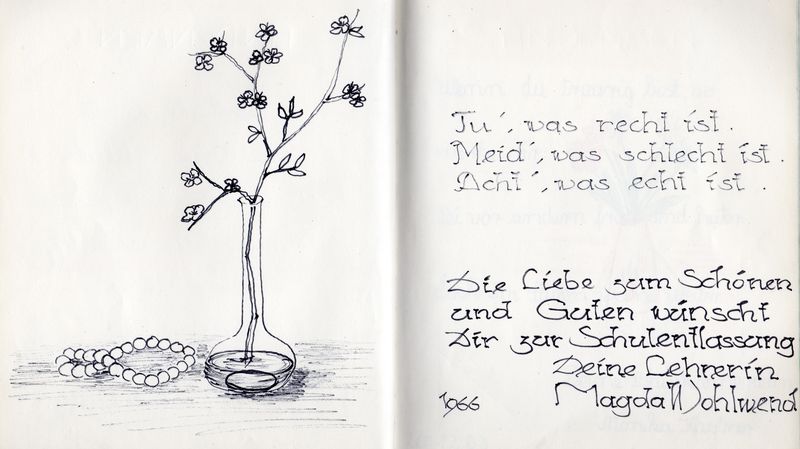 Tu', was recht ist.
Meid', was schlecht ist.
Acht', was echt ist.
Die Liebe zum Schönen
und Guten wünscht
Dir zur Schulentlassung
Deine Lehrerin
1966 Magda Wohlwend